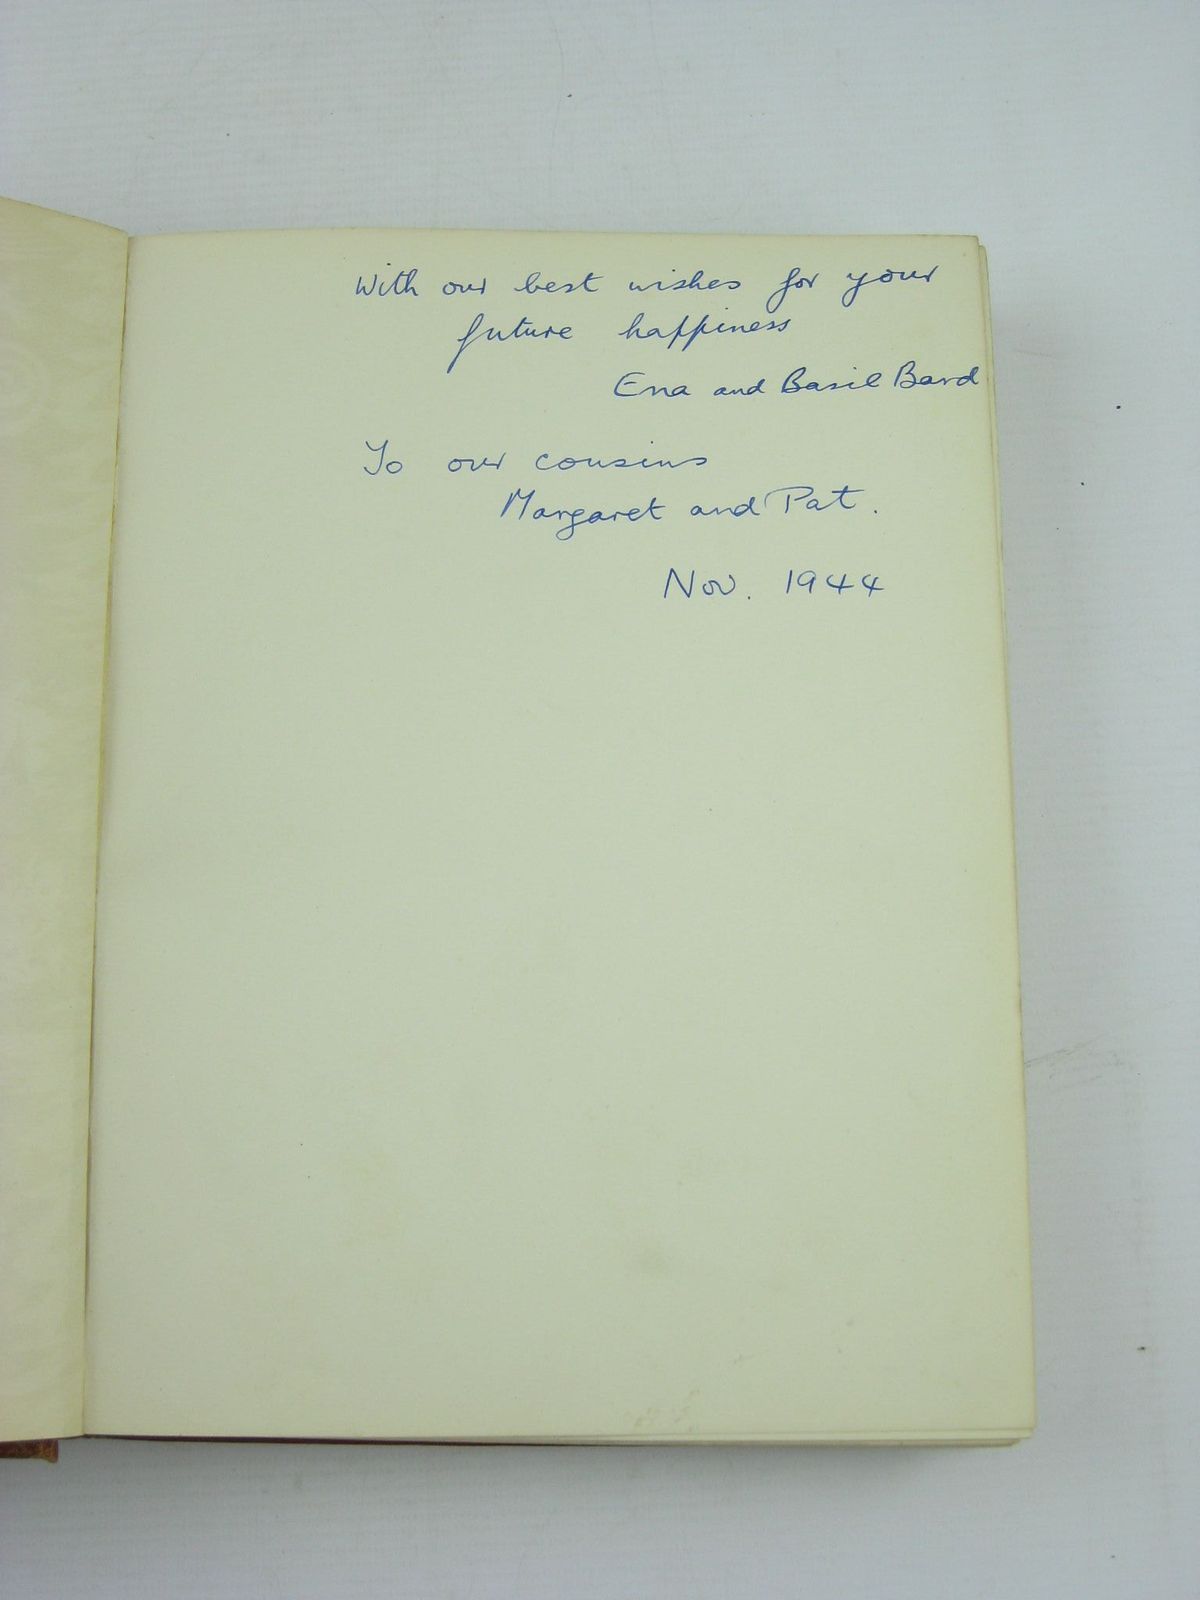 With our best wishes for your
future happiness
Ena and Basil Bard
To our cousins
Margaret and Pat.
Nov. 1944